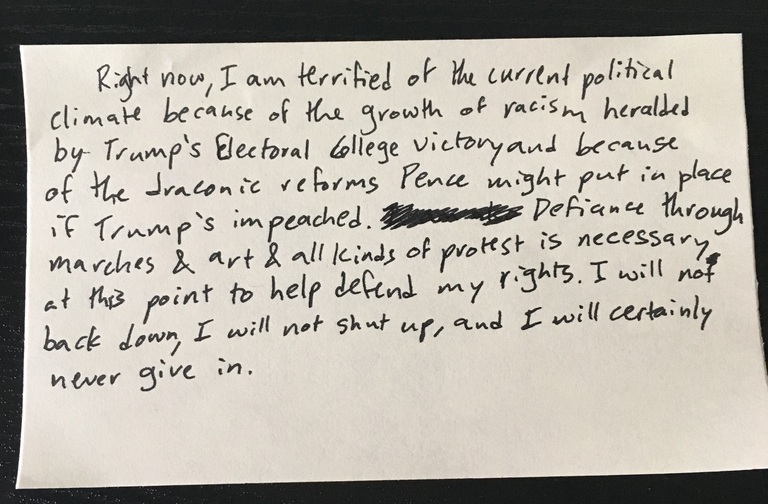 Right now, I am terrified of the current political
climate because of the growth of racism heralded
by Trump's Electoral College victory and because
of the draconic reforms Pence might put in place
if Trump's impeached. Defiance through
marches & art & all kinds of protest is necessary
at this point to help defend my rights. I will not
back down, I will not shut up, and I will certainly
never give in.